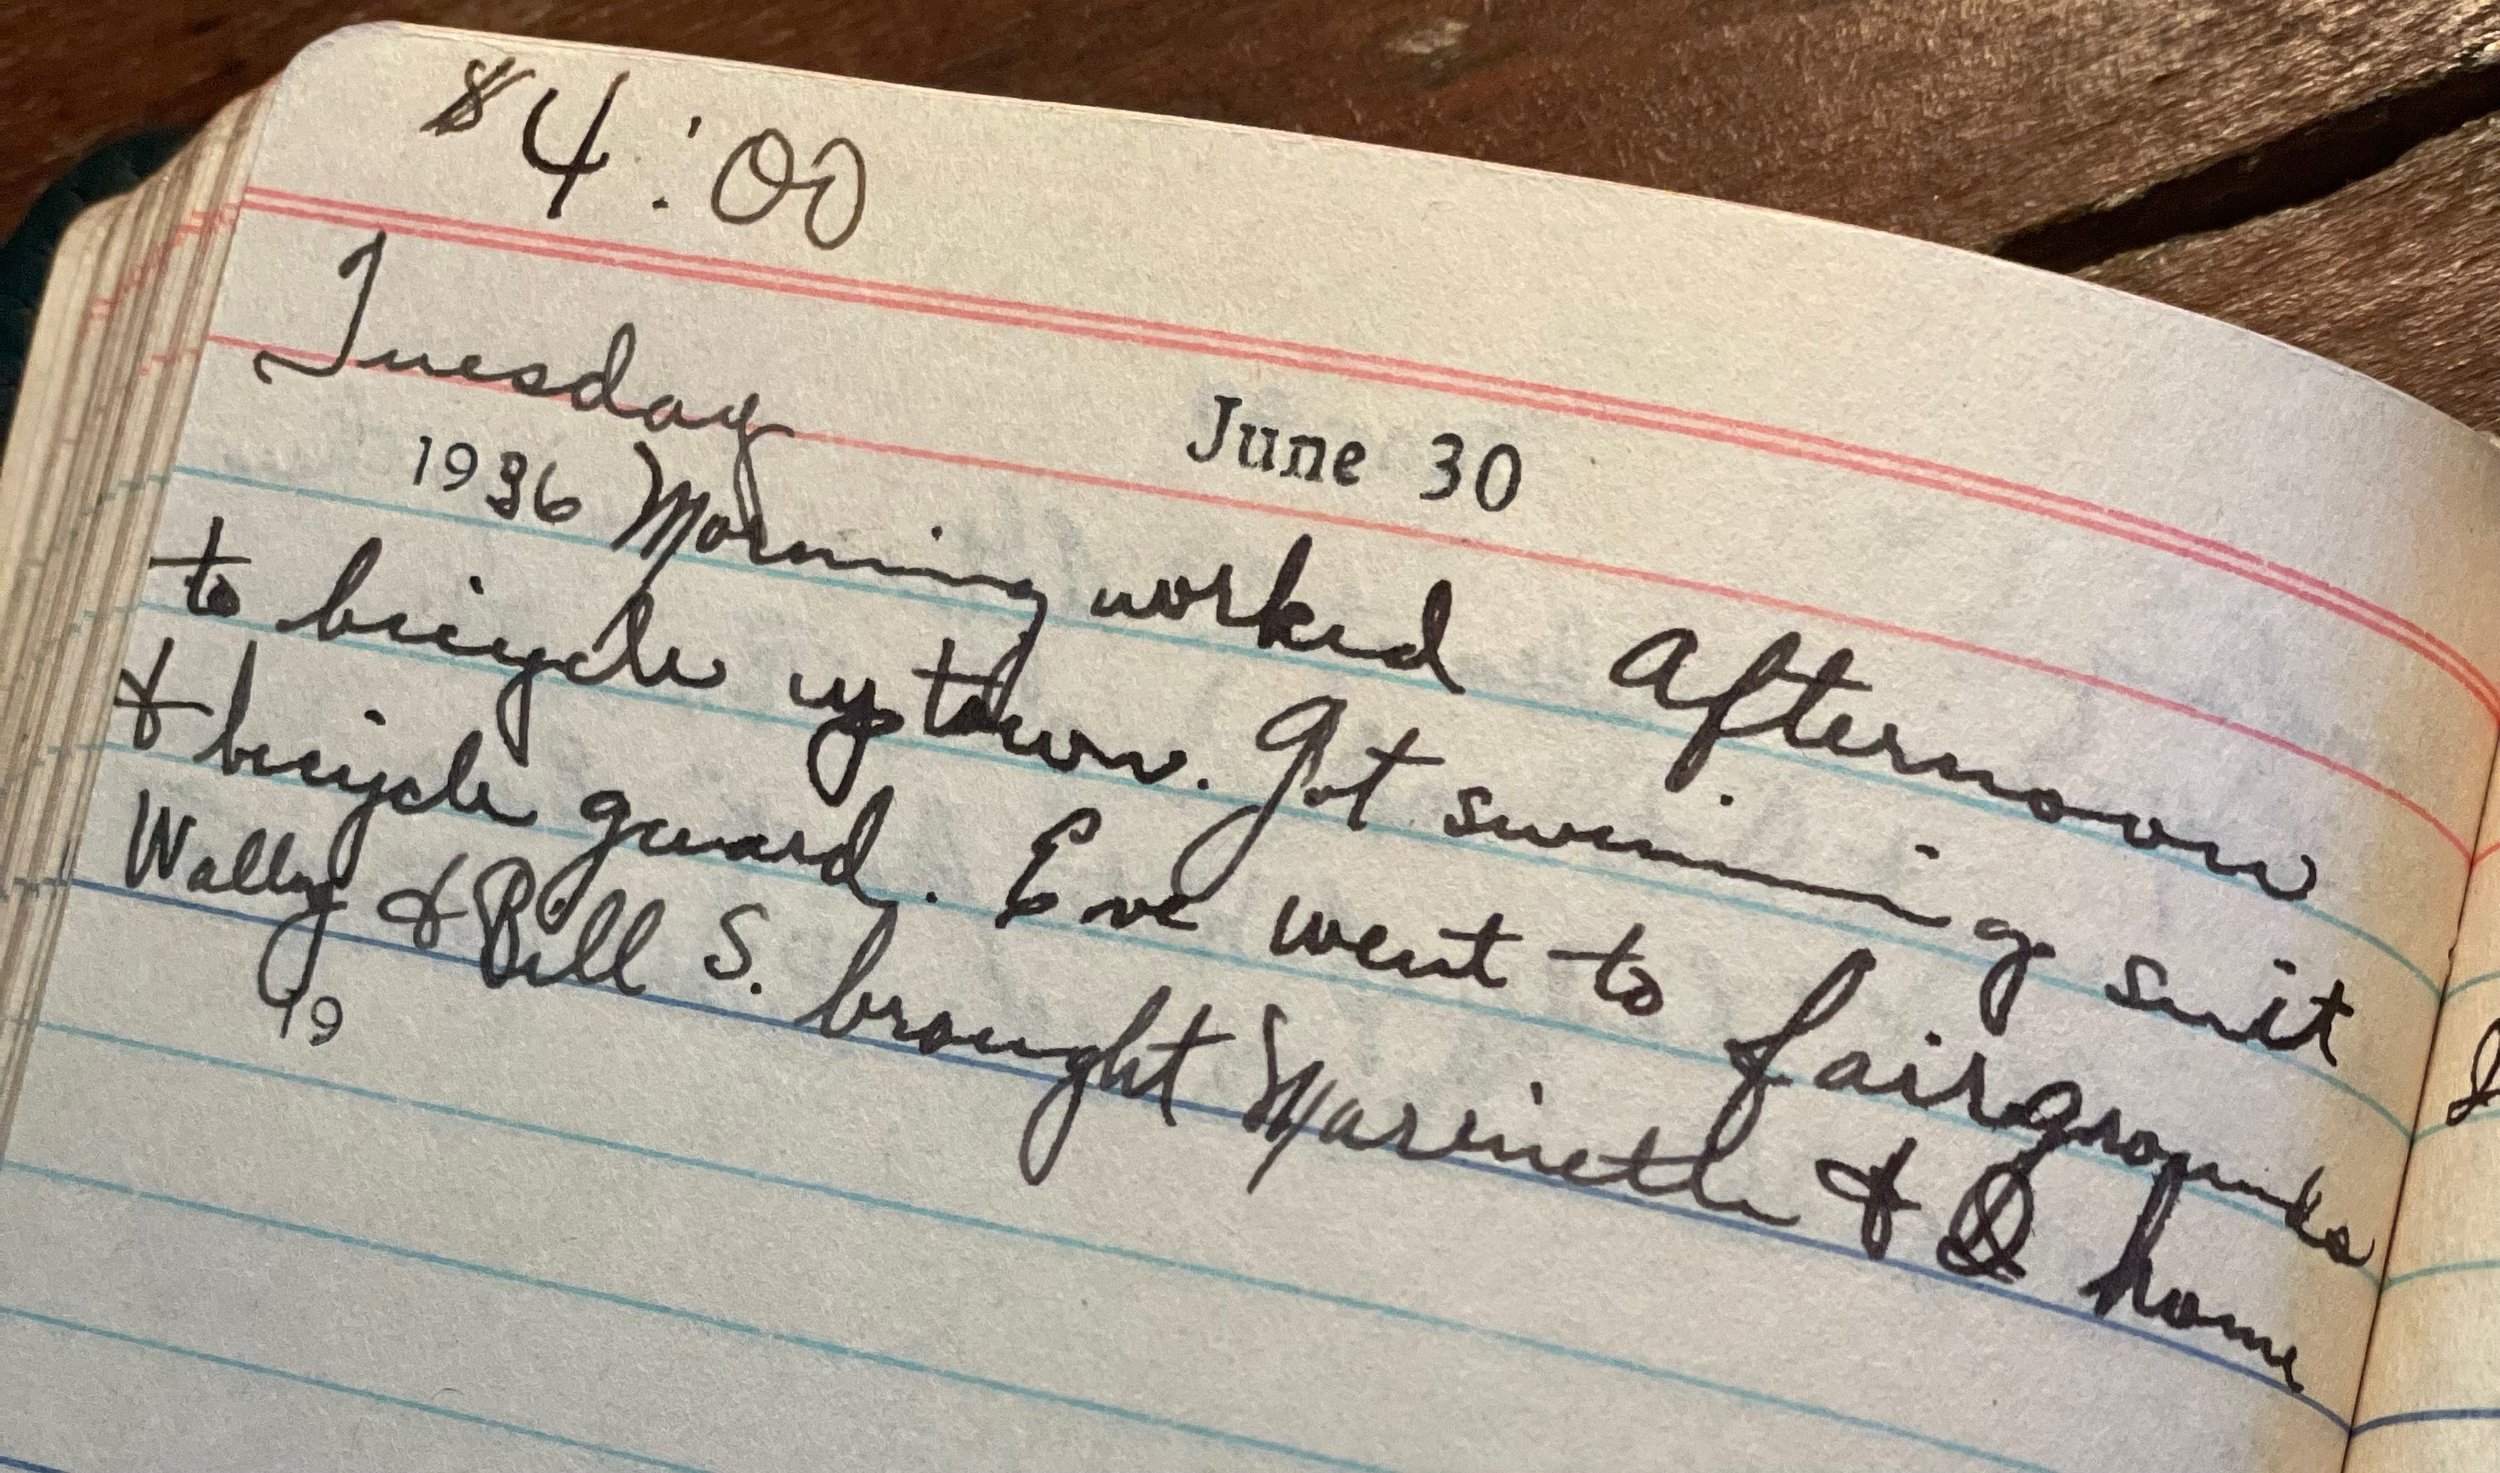 $4:00
Tuesday
June 30
1936 Morning worked Afternoon
to bicycle up town. Got swimming suit
& bicycle guard. Eve went to fairgrounds
Wally & Bill S. brought & I home
19